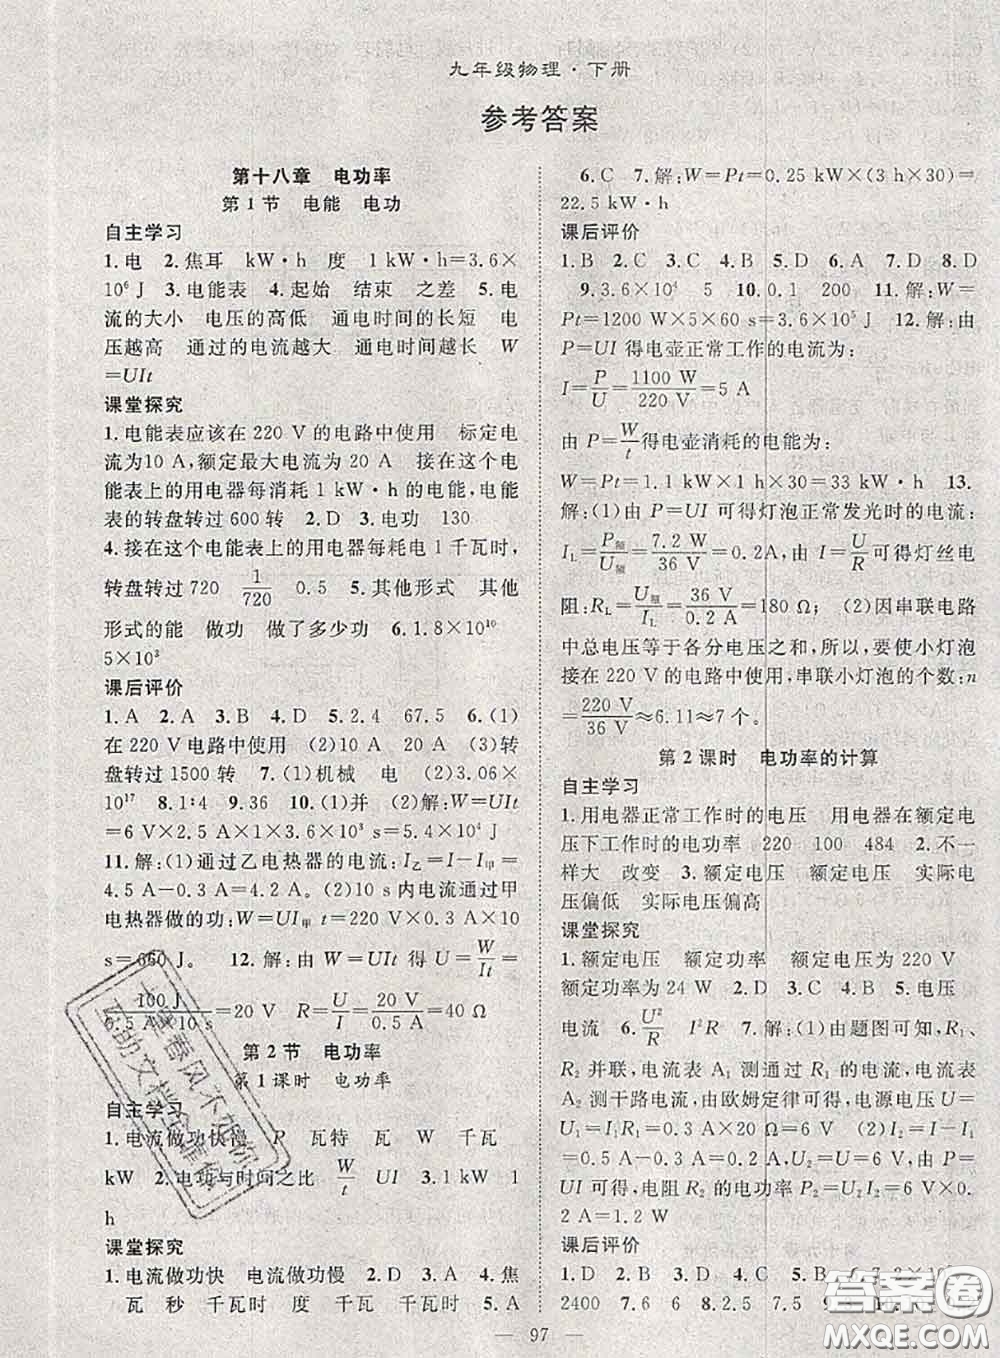 九年级物理·下册
参考答案
第十八章 电功率
第1节 电能 电功
自主学习
1.电 2.焦耳 kW·h 度 1 kW·h=3.6×
10⁶ J 3.电能表 4.起始 结束 之差 5.电
流的大小 电压的高低 通电时间的长短 电
压越高 通过的电流越大 通电时间越长 W
=UIt
课堂探究
1.电能表应该在 220 V 的电路中使用 标定电
流为10 A,额定最大电流为 20 A 接在这个电
能表上的用电器每消耗 1 kW·h 的电能,电能
表的转盘转过 600 转 2.D 3.电功 130
4.接在这个电能表上的用电器每耗电 1 千瓦时,
转盘转过 720 1/720 0.5 5.其他形式 其他
形式的能 做功 做了多少功 6.1.8×10¹⁰
5×10³
课后评价
1.A 2.A 3.B 4.D 5.2.4 67.5 6.(1)
在 220 V 电路中使用 (2)10 A 20 A (3)转
盘转过 1500 转 7.(1)机械 电 (2)3.06×
10¹⁷ 8.1:4 9.36 10.(1)并 (2)解:W=UIt
=6 V×2.5 A×1×3.6×10³ s=5.4×10⁴ J
11.解:(1)通过乙电热器的电流:I乙=I-I甲=
4.5 A-0.3 A=4.2 A。(2)10 s 内电流通过甲
电热器做的功:W=UI甲 t=220 V×0.3 A×10
s=660 J。 12.解:由 W=UIt 得 U=W/It
=100 J/0.5 A×10 s=20 V R=U/I=20 V/0.5 A=40 Ω
第2节 电功率
第1课时 电功率
自主学习
1.电流做功快慢 P 瓦特 瓦 W 千瓦
kW 2.电功与时间之比 W/t UI 3.1 kW 1
h
课堂探究
1.电流做功快 电流做功慢 2.D 3.A 4.焦
瓦 秒 千瓦时 度 千瓦 千瓦时 5.A
6.C 7.解:W=Pt=0.25 kW×(3 h×30)=
22.5 kW·h
课后评价
1.B 2.C 3.C 4.B 5.D 6.A 7.D 8.D
9.3.6×10⁴ 5 10.0.1 200 11.解:W=
Pt=1200 W×5×60 s=3.6×10⁵ J 12.解:由
P=UI 得电壶正常工作的电流为:
I=P/U=1100 W/220 V=5 A
由 P=W/t得电壶消耗的电能为:
W=Pt=1.1 kW×1 h×30=33 kW·h 13.
解:(1)由 P=UI 可得灯泡正常发光时的电流:
I_L=P额/U额=7.2 W/36 V=0.2A,由 I=U/R可得灯丝电
阻:R_L=U额/I_L=36 V/0.2 A=180 Ω; (2)因串联电路
中总电压等于各部分电压之和,所以,要使小灯泡
接在 220 V 的电路中使用,串联小灯泡的个数:n
=220 V/36 V≈6.11≈7 个。
第2课时 电功率的计算
自主学习
1.用电器正常工作时的电压 用电器在额定电
压下工作时的电功率 220 100 484 2.不一
样大 改变 3.额定电压 额定电压 实际电
压偏低 实际电压偏高
课堂探究
1.额定电压 额定功率 额定电压为 220 V
额定功率为 24 W 2.D 3.D 4.C 5.电压
电流 6.U²/R I²R 7.解:(1)由题图可知,R₁、
R₂ 并联,电流表 A₁ 测通过 R₁ 的电流,电流表
A₂ 测干路电流,由欧姆定律可得,电源电压 U
=U₁=I₁R₁=0.3 A×20 Ω=6 V (2)I₂=I-I₁
=0.5 A-0.3 A=0.2 A,U₂=U=6 V,由 P=
UI 可得,电阻 R₂ 的电功率 P₂=U₂I₂=6 V×
0.2 A=1.2 W
课后评价
1.D 2.C 3.C 4.D 5.B 6.7.2×10
2400 7.6 6 8.2.5 7.5
97
答案圈
MXQE.COM